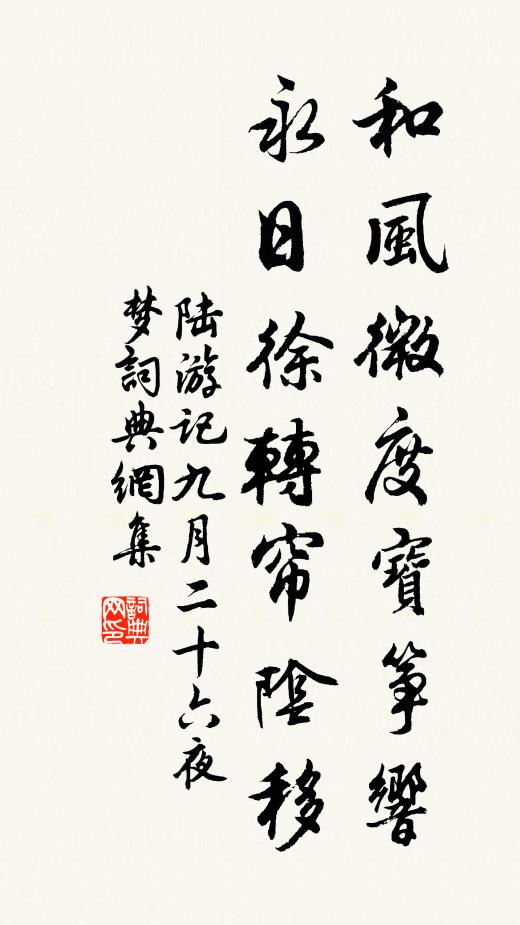 和風微度寶箏響
永日徐轉帘陰移
陆游记九月二十六夜
梦詞典網集
詞典
网印